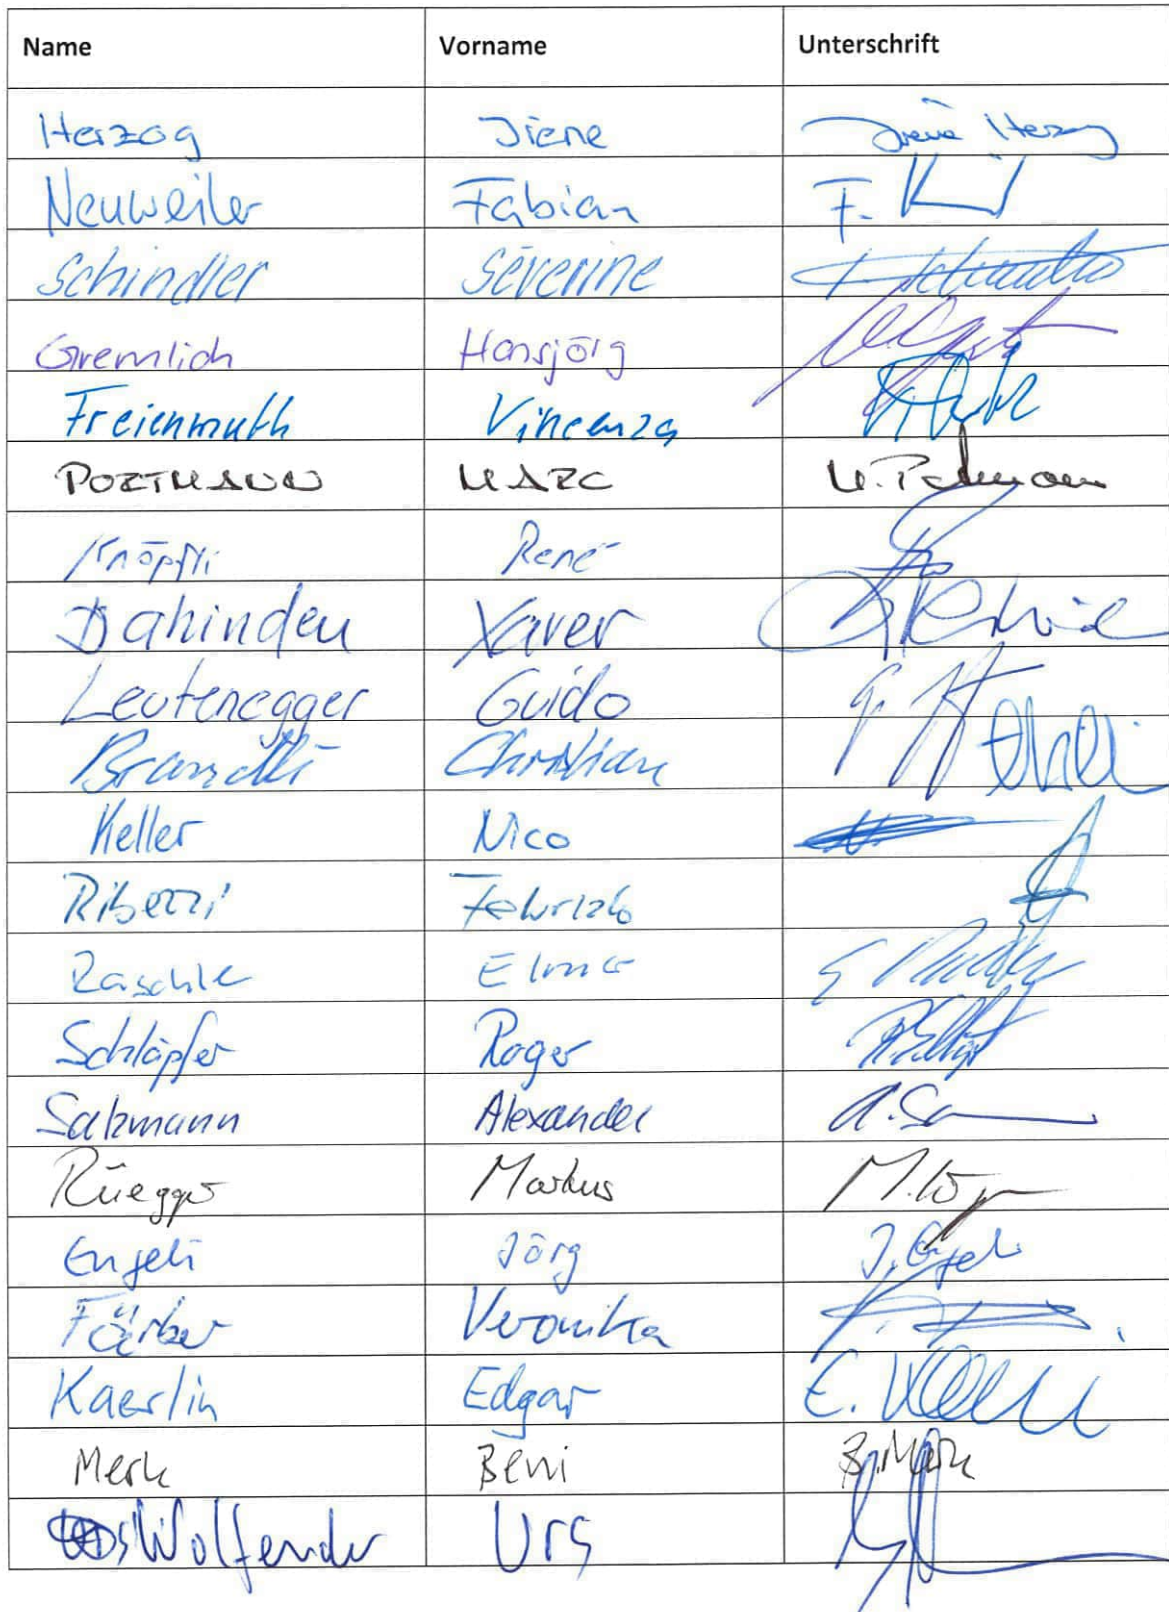 Name Vorname Unterschrift
Herzog Irene Irene Herzog
Neuweiler Fabian F.
Schindler Séverine
Gremlich Hansjörg
Freienmuth Vincenza
PORTMANN MARC M. Portmann
Knöpfli René
Dahinden Xaver
Leutenegger Guido
Brändli Christian
Keller Nico
Ribezzi Fabrizio
Raschle Elmar
Schläpfer Roger
Salzmann Alexander A. Sa
Rüegger Markus
Engeli Jörg J. Engeli
Färber Veronika
Kaerlin Edgar E.
Merk Beni B. Merk
Wolfender Urs